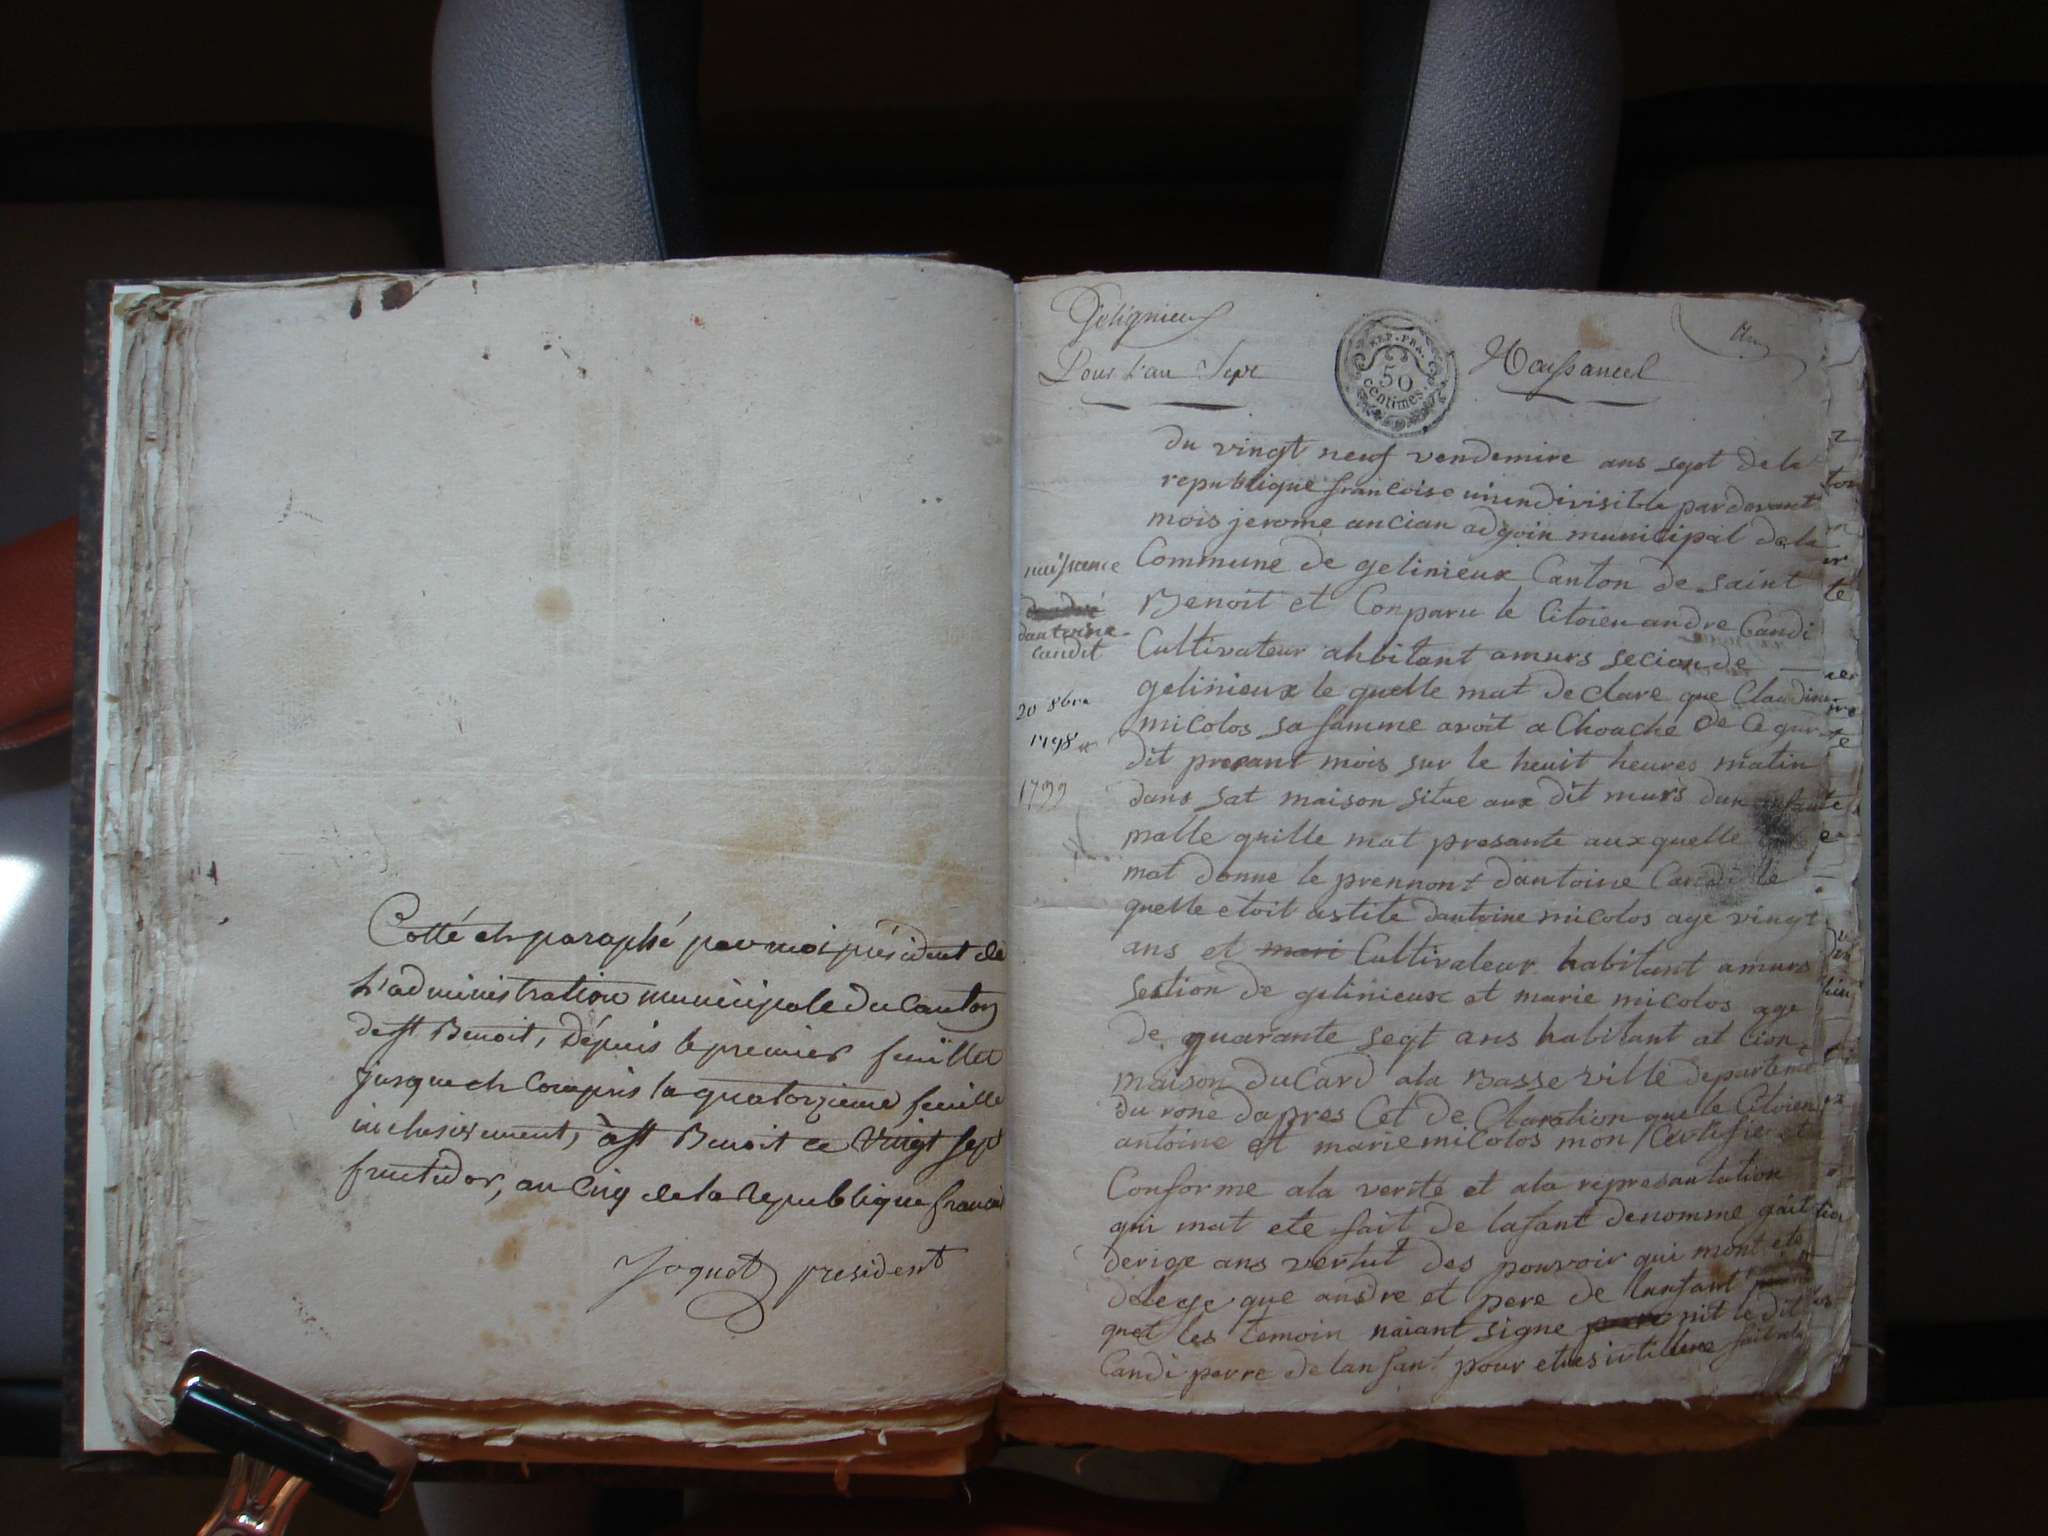 Cotté et paraphé par moi président de
L'administration municipale du Canton
de st Benoit, Dépuis le premier feuillet
jusque et Compris la quatorzieme feuille
inclusivement, à st Benoit ce Vingt sept
fructidor, an Cinq de la Republique francai
Joquot president
Gelignieux
Pour l'an Sept
REP. FRA.
50
centimes.
Naissances
du vingt neuf vendemire ans sept de la
republique francoise uinindivisible par devant
mois jerome ancian adgoin municipal de la
Commune de gelinieux Canton de saint
Benoit et Conparu le Citoien andre Candi
Cultivateur ahbitant amurs secion de
gelinieux le quelle mat declare que Claudine
micolos sa famme avoit a Chouche de
dit presant mois sur le heuit heures matin
dans sat maison situe aux dit murs dun enfante
malle quille mat presante aux quelle
mat donne le prennont dantoine Candi le
quelle etoit astite dantoine micolos age vingt
ans et mari Cultivateur habitant amurs
section de gelinieux et marie micolos age
de quarante segt ans habitant at lion
maison du Card ala Basse ville departeme
du rone dapres Cet de Claration que le Citoien
antoine et marie micolos mon Certifie et
Conforme ala verité et ala representation
qui mat ete fait de lafant denomme
derige ans vertut des pouvoir qui mont ete
delege que andre et pere de lanfant
quet les temoin naiant signe nit le dit
Candi perre de lanfant pour
naissance
dantoine
candit
20 8bre
1798
1799